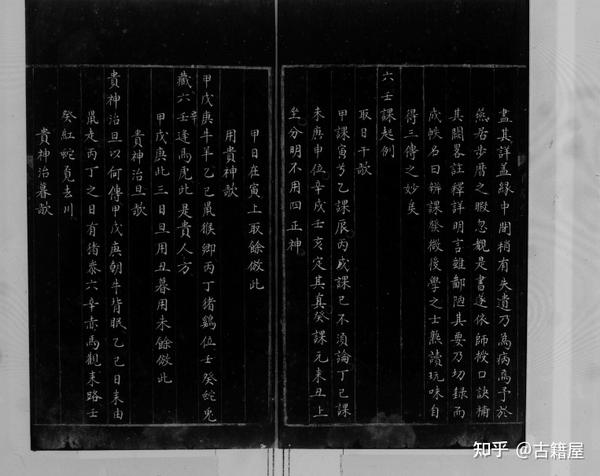 盡其詳孟緣中間稍有失遺乃為病焉予於
燕若步曆之暇忽覩是書遂依師授口訣補
其闕畧註釋詳明言雖鄙陋其要乃切録而
成帙名曰辨課發微後學之士熟讀玩味自
得三傳之妙矣
六壬課起例
取日干歌
甲課寅兮乙課辰丙戊課巳不須論丁己課
未庚申位辛戌壬亥定其真癸課元來丑上
坐分明不用四正神
甲日在寅上取餘倣此
用貴神歌
甲戊庚牛羊乙己鼠猴鄉丙丁猪鷄位壬癸蛇兎
藏六壬辛逢馬虎此是貴人方
甲戊庚此三日旦用丑暮用未餘倣此
貴神治旦歌
貴神治旦以何傳甲戊庚朝牛背眠乙己日來由
鼠走丙丁之日有猪泰六辛赤馬觀來路壬
癸紅蛇覓去川
貴神治暮歌
知乎 @古籍屋